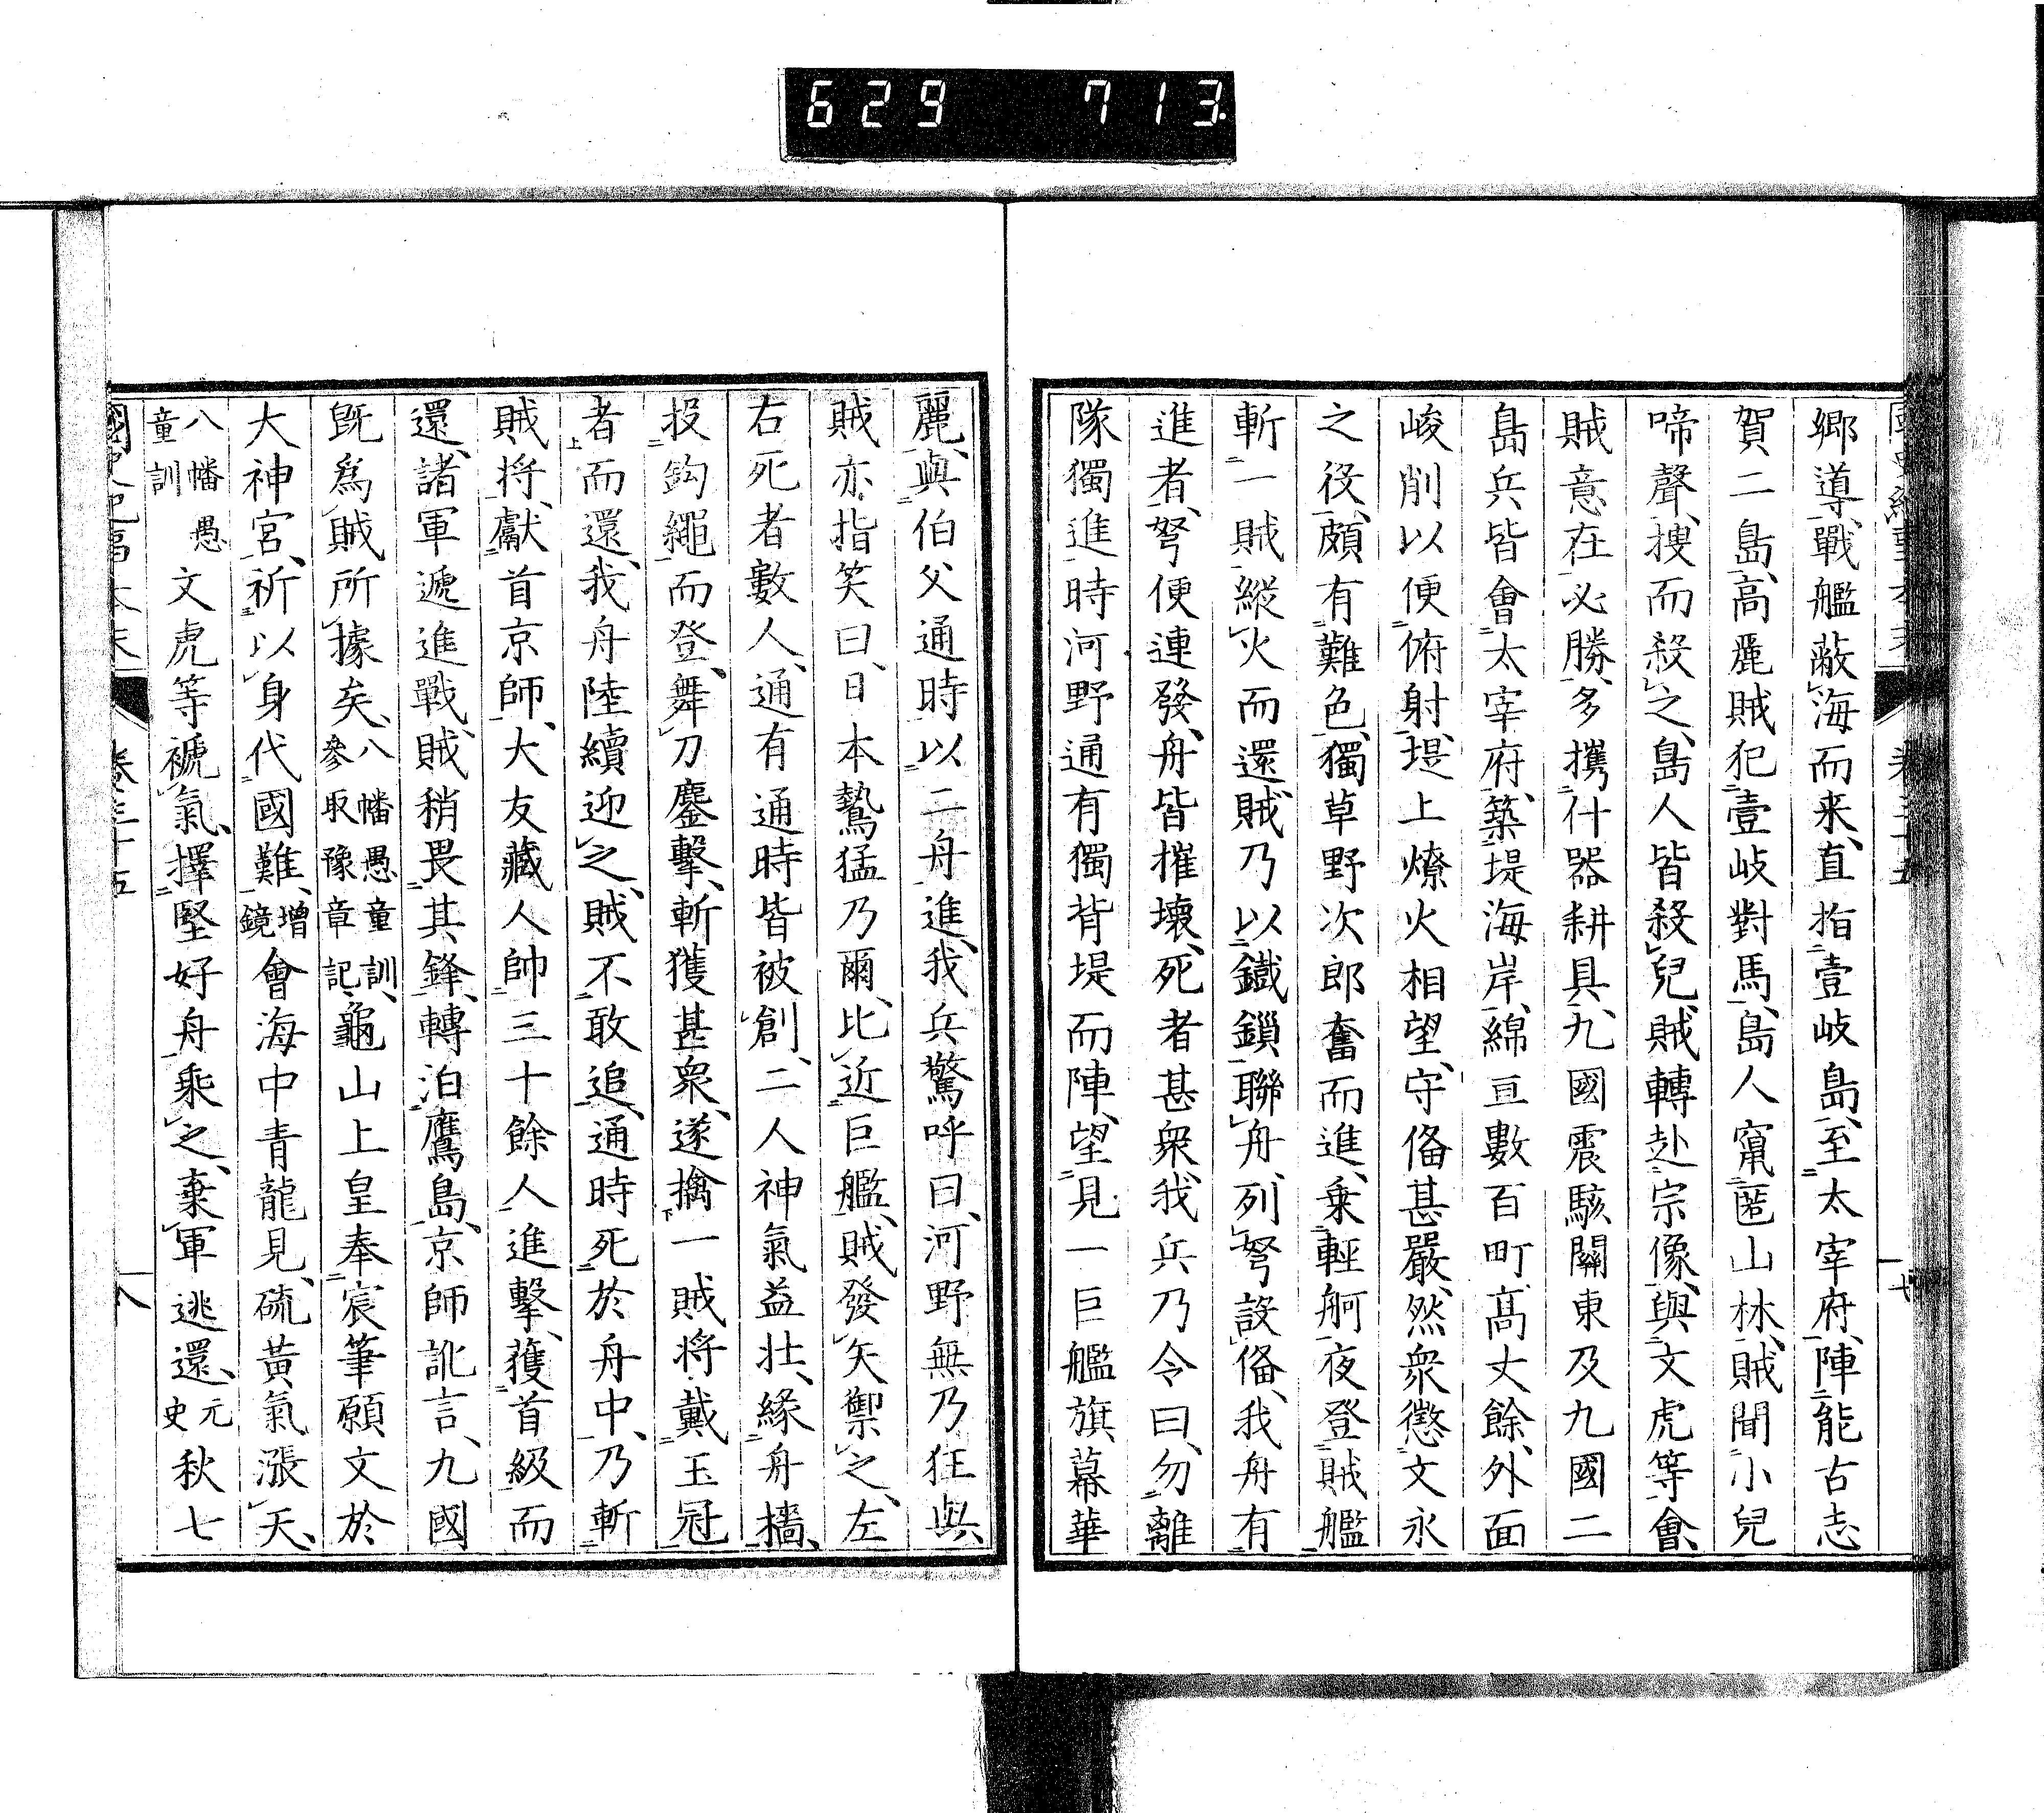 629 713
鄉導、戰艦蔽海而来、直指壹岐島、至太宰府、陣能古志
賀二島、高麗賊犯壹岐對馬、島人竄匿山林、賊聞小兒
啼聲、搜而殺之、島人皆殺兒、賊轉赴宗像、與文虎等會、
賊意在必勝、多攜什器耕具、九國震駭關東及九國二
島兵皆會太宰府、築堤海岸、綿亘數百町、高丈餘、外面
峻削以便俯射、堤上燎火相望、守俻甚嚴、然衆懲文永
之役、頗有難色、獨草野次郎奮而進、乗輕舸夜登賊艦
斬一賊縱火而還、賊乃以鐵鎖聯舟、列弩設俻、我舟有
進者、弩便連發、舟皆摧壞、死者甚衆、我兵乃令曰、勿離
隊獨進、時河野通有獨背堤而陣、望見一巨艦旗幕華
麗、與伯父通時以二舟進、我兵驚呼曰、河野無乃狂與
賊亦指笑曰、日本驇猛乃爾、比近巨艦、賊發矢禦之、左
右死者數人、通有通時皆被創、二人神氣益壮、縁舟檣、
投鈎繩而登、舞刀鏖擊、斬獲甚衆、遂擒一賊将戴玉冠
者而還、我舟陸續迎之、賊不敢追、通時死於舟中、乃斬
賊将、獻首京師、大友藏人帥三十餘人進擊、獲首級而
還、諸軍遞進戰、賊稍畏其鋒、轉泊鷹島、京師訛言、九國
既爲賊所據矣、八幡愚童訓、參取豫章記、龜山上皇奉宸筆願文於
大神宮、祈以身代國難、增鏡會海中青龍見、硫黃氣漲天、
八幡愚童訓文虎等褫氣、擇堅好舟乘之、棄軍逃還、元史秋七
卷三十五 八